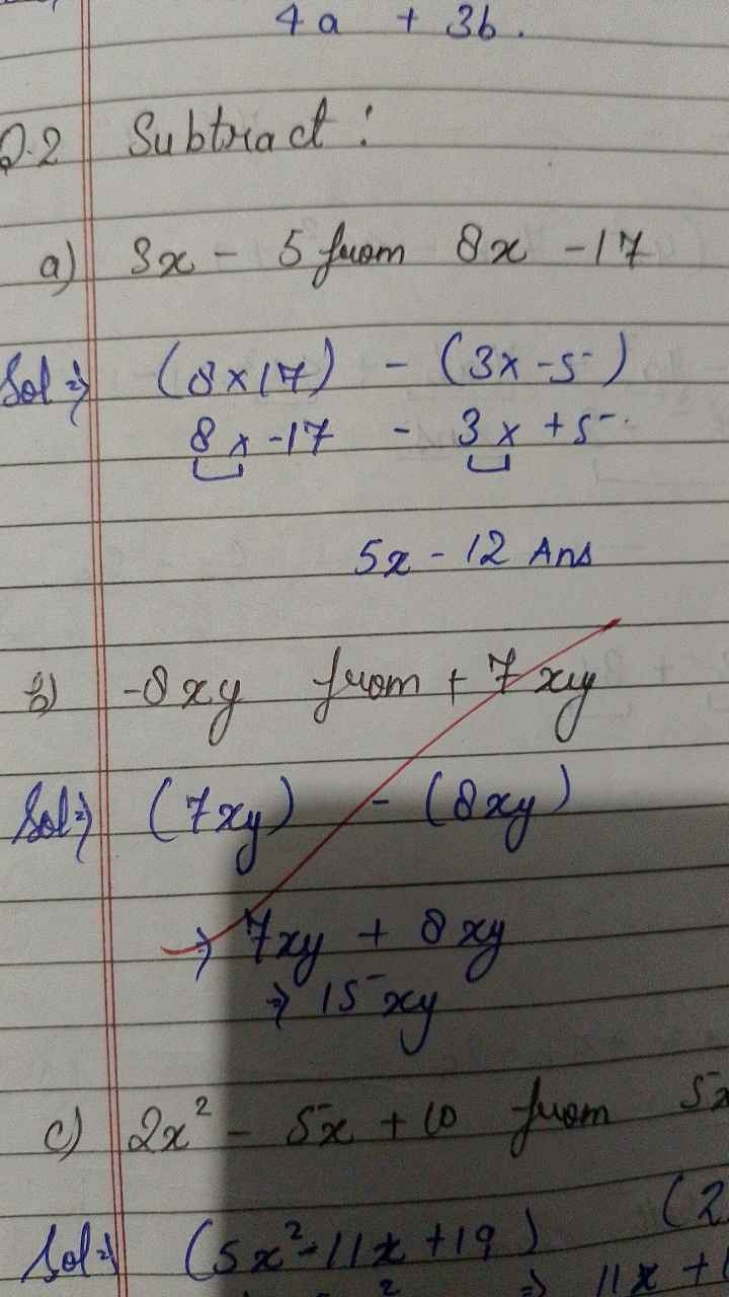 4a + 3b.
Q.2 Subtract :
a) 3x - 5 from 8x - 17
Sol ⇒ (8x17) - (3x - 5)
8x - 17 - 3x + 5
5x - 12 Ans
b) -8xy from + 7xy
Sol ⇒ (7xy) - (8xy)
⇒ 7xy + 8xy
⇒ 15xy
c) 2x² - 5x + 10 from 5x
Sol ⇒ (5x² - 11x + 19) (2
⇒ 11x +